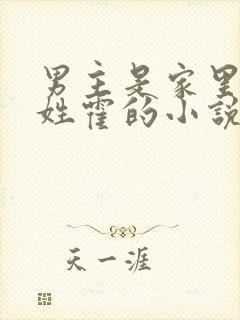 男主是家里
姓霍的小说
天一涯